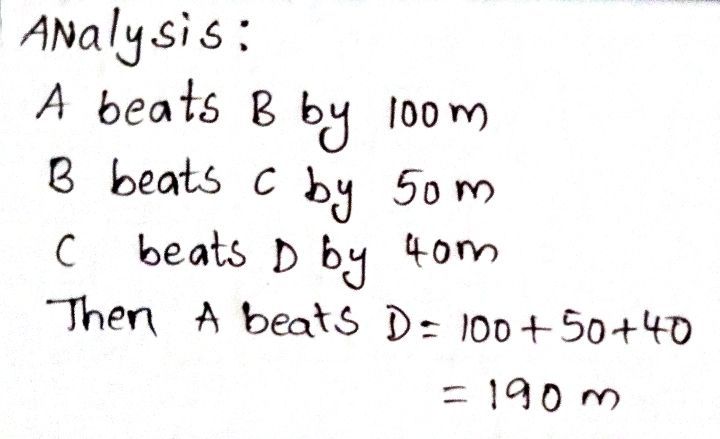 ANalysis:
A beats B by 100 m
B beats C by 50 m
C beats D by 40m
Then A beats D = 100 + 50 + 40
= 190 m